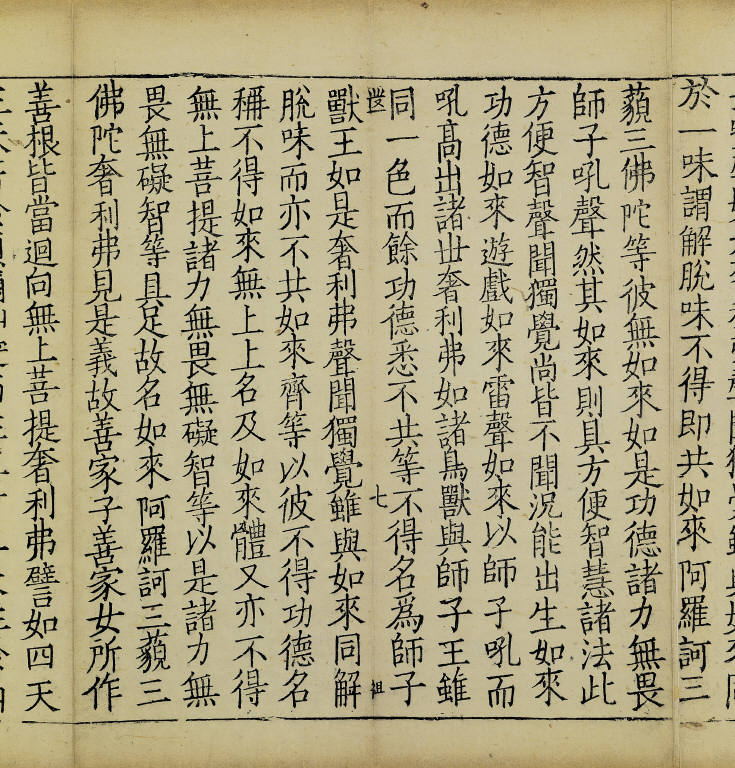 於一味謂解脫味不得即共如來阿羅訶三
藐三佛陀等彼無如來如是功德諸力無畏
師子吼聲然其如來則具方便智慧諸法此
方便智聲聞獨覺尚皆不聞況能出生如來
功德如來遊戲如來雷聲如來以師子吼而
吼高出諸丗奢利弗如諸鳥獸與師子王雖
同一色而餘功德悉不共等不得名爲師子
七 祖
獸王如是奢利弗聲聞獨覺雖與如來同解
脫味而亦不共如來齊等以彼不得功德名
稱不得如來無上上名及如來體又亦不得
無上菩提諸力無畏無礙智等以是諸力無
畏無礙智等具足故名如來阿羅訶三藐三
佛陀奢利弗見是義故善家子善家女所作
善根皆當迴向無上菩提奢利弗譬如四天